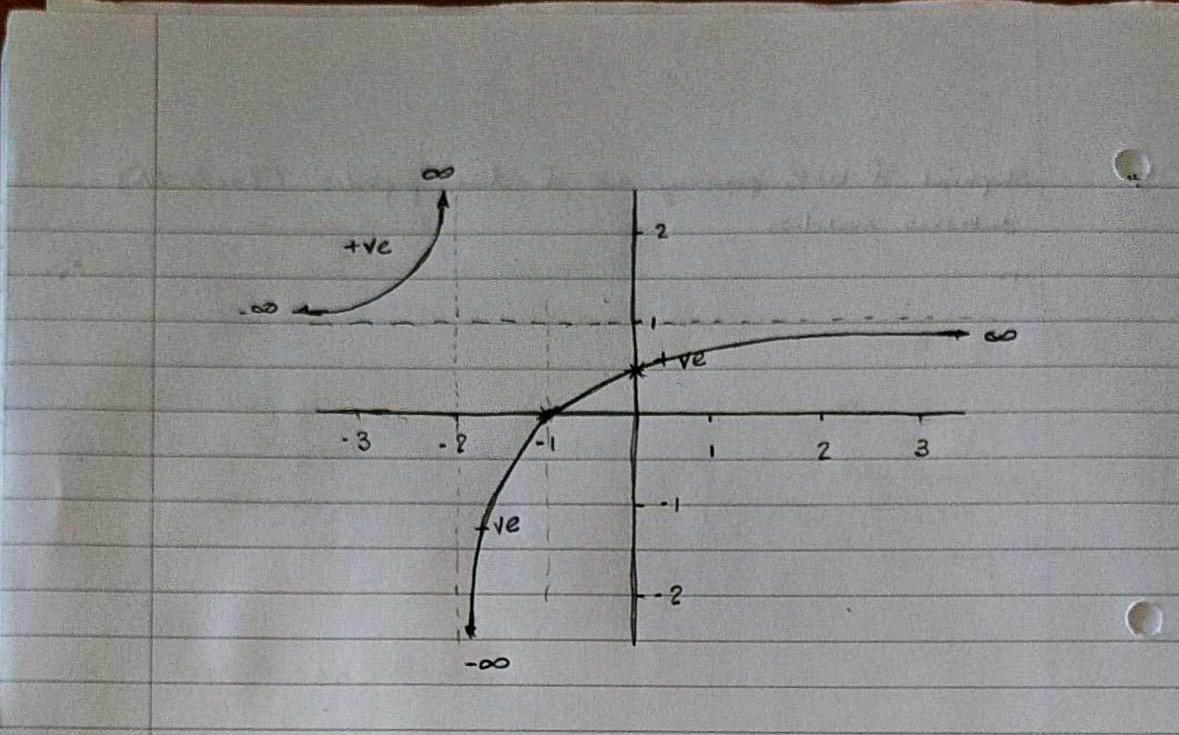 ∞
+ve
2
-∞
1
∞
+ve
-3 -2 -1 1 2 3
-1
-ve
-2
-∞